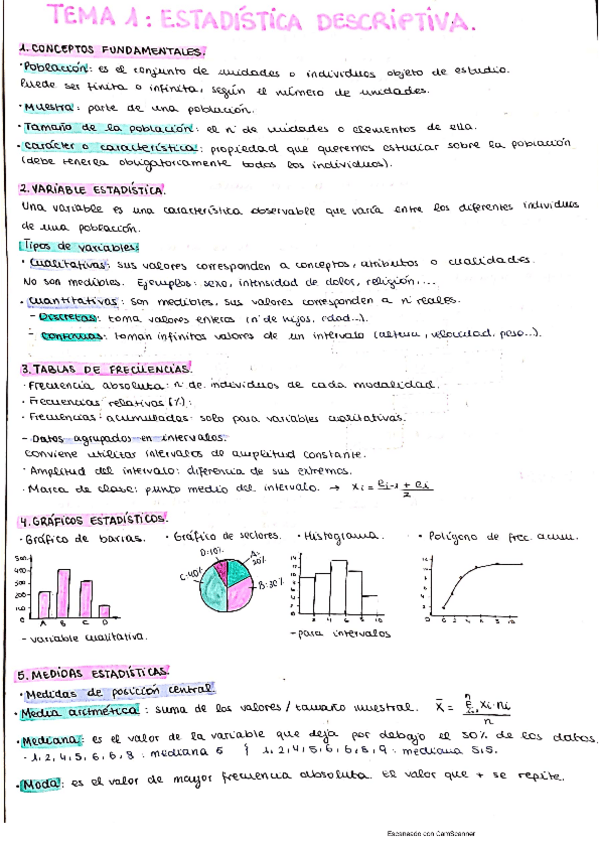 TEMA 1: ESTADÍSTICA DESCRIPTIVA.
1. CONCEPTOS FUNDAMENTALES.
· Población: es el conjunto de unidades o individuos objeto de estudio.
Puede ser finita o infinita, según el número de unidades.
· Muestra: parte de una población.
· Tamaño de la población: el nº de unidades o elementos de ella.
· Carácter o característica: propiedad que queremos estudiar sobre la población
(debe tenerla obligatoriamente todos los individuos).
2. VARIABLE ESTADÍSTICA.
Una variable es una característica observable que varía entre los diferentes individuos
de una población.
Tipos de variables:
· Cualitativas: sus valores corresponden a conceptos, atributos o cualidades.
No son medibles. Ejemplos: sexo, intensidad de dolor, religión,...
· Cuantitativas: son medibles, sus valores corresponden a nº reales.
- Discretas: toma valores enteros (nº de hijos, edad...).
- Continuas: toman infinitos valores de un intervalo (altura, velocidad, peso...).
3. TABLAS DE FRECUENCIAS.
· Frecuencia absoluta: nº de individuos de cada modalidad.
· Frecuencias relativas (%):
· Frecuencias acumuladas: solo para variables cualitativas.
- Datos agrupados en intervalos:
conviene utilizar intervalos de amplitud constante.
· Amplitud del intervalo: diferencia de sus extremos.
· Marca de clase: punto medio del intervalo. → xi = ei-1 + ei / 2
4. GRÁFICOS ESTADÍSTICOS.
· Gráfico de barras. · Gráfico de sectores. · Histograma. · Polígono de frec. acum.
500 400 300 200 100 0
A B C D
D:10% A: 20% B:30% C:40%
2 4 6 8 10
0 2 4 6 8 10
- variable cualitativa. - para intervalos
5. MEDIDAS ESTADÍSTICAS.
· Medidas de posición central.
· Media aritmética: suma de los valores / tamaño muestral. x̄ = Σ xi·ni / n
· Mediana: es el valor de la variable que deja por debajo el 50% de los datos.
· 1, 2, 4, 5, 6, 6, 8 : mediana 5 y 1, 2, 4, 5, 6, 6, 8, 9 : mediana 5,5.
· Moda: es el valor de mayor frecuencia absoluta. El valor que + se repite.
Escaneado con CamScanner